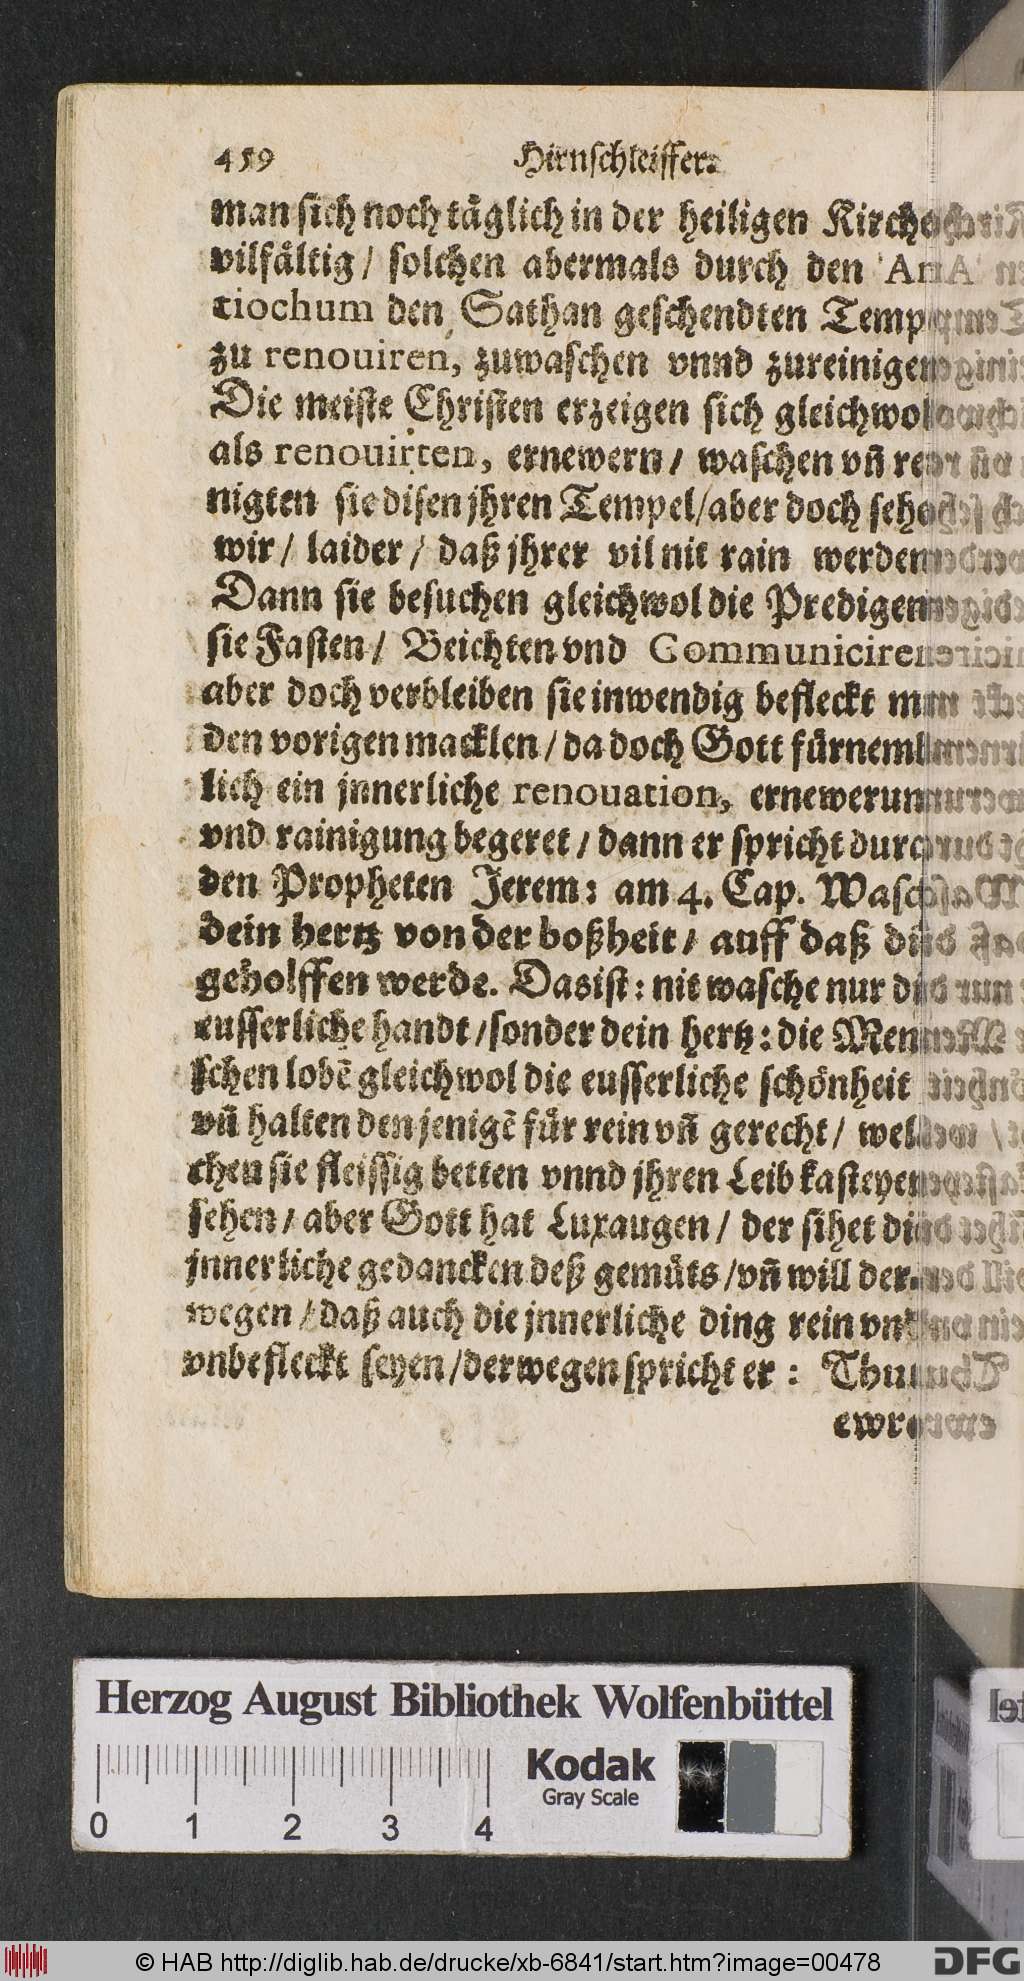 459 Hirnschleiffer.
man sich noch täglich in der heiligen Kirche
vilfältig / solchen abermals durch den An
tiochum den Sathan geschendten Temp
zu renouiren, zuwaschen vnnd zureinigen
Die meiste Christen erzeigen sich gleichwol
als renouirten, ernewern / waschen vñ re
nigten sie disen jhren Tempel / aber doch sehe
wir / laider / daß jhrer vil nit rain werden
Dann sie besuchen gleichwol die Predigen
sie Fasten / Beichten vnd Communiciren
aber doch verbleiben sie inwendig befleckt m
den vorigen macklen / da doch Gott fürnem
lich ein jnnerliche renouation, ernewerun
vnd rainigung begeret / dann er spricht durc
den Propheten Jerem: am 4. Cap. Wasc
dein hertz von der boßheit / auff daß du
geholffen werde. Das ist: nit wasche nur di
eusserliche handt / sonder dein hertz: die Men
schen lobē gleichwol die eusserliche schönheit
vñ halten den jenigē für rein vñ gerecht / wel
chen sie fleissig betten vnnd jhren Leib kasteyen
sehen / aber Gott hat Luxaugen / der sihet di
jnnerliche gedancken deß gemüts / vñ will der
wegen / daß auch die jnnerliche ding rein vnd
vnbefleckt seyen / derwegen spricht er: Thu
ewre
Herzog August Bibliothek Wolfenbüttel
Kodak
Gray Scale
0 1 2 3 4
© HAB http://diglib.hab.de/drucke/xb-6841/start.htm?image=00478
DFG